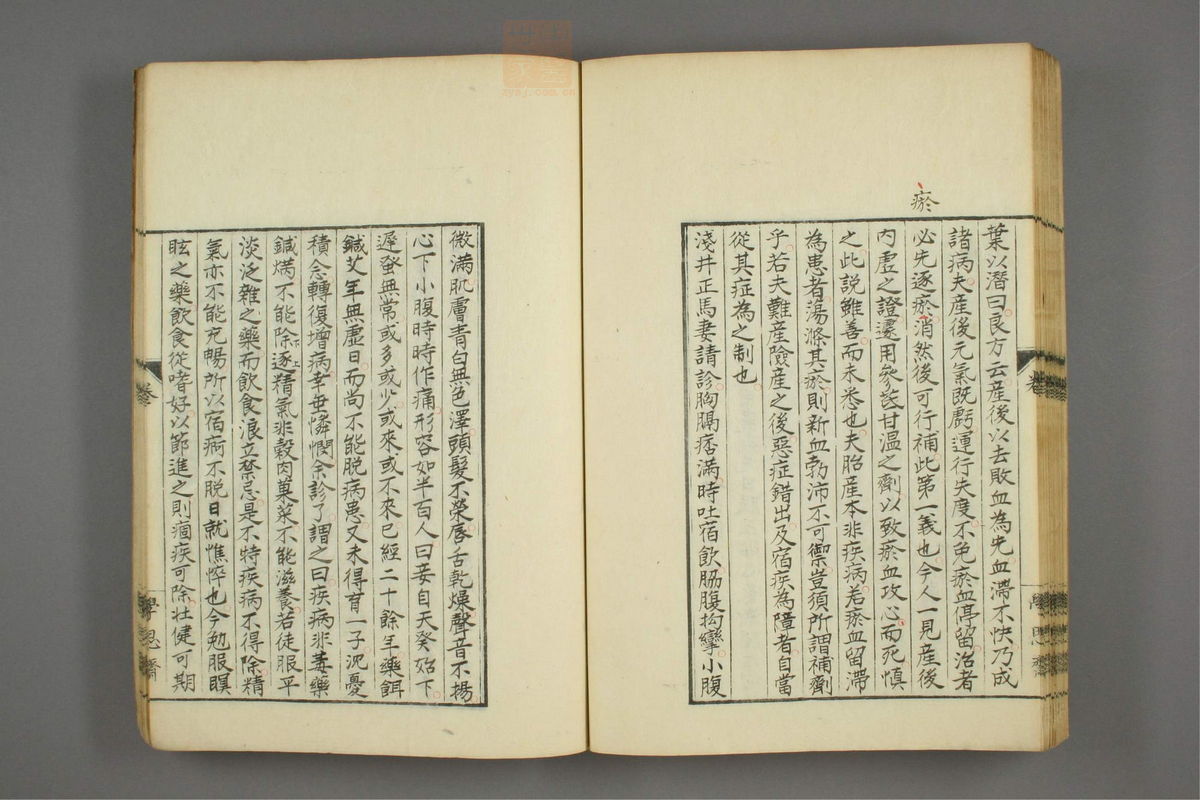 瘀
葉以潛曰良方云産後以去敗血為先血滯不快乃成
諸病夫産後元氣既虧運行失度不免瘀血停留治者
必先逐瘀消然後可行補此第一義也今人一見産後
內虛之證遽用參芪甘溫之劑以致瘀血攻心而死慎
之此說雖善而未悉也夫胎産本非疾病若瘀血留滯
為患者蕩滌其瘀則新血勃沛不可禦豈須所謂補劑
乎若夫難産險産之後惡症錯出及宿疾為障者自當
從其症為之制也
淺井正馬妻請診胸膈痞滿時吐宿飲脇腹拘攣小腹
微滿肌膚青白無色澤頭髮不榮唇舌乾燥聲音不揚
心下小腹時時作痛形容如半百人曰妾自天癸始下
遲發無常或多或少或來或不來已經二十餘年藥餌
鍼艾年無虛日而尚不能脫病患又未得育一子沉憂
積念轉復增病幸垂憐憫余診了謂之曰疾病非毒藥
鍼焫不能除逐精氣非穀肉菓菜不能滋養若徒服平
下上
淡泛雜之藥而飲食浪立禁忌是不特疾病不得除精
氣亦不能充暢所以宿痾不脫日就憔悴也今勉服瞑
眩之藥飲食從嗜好以節進之則痼疾可除壯健可期
學思齋